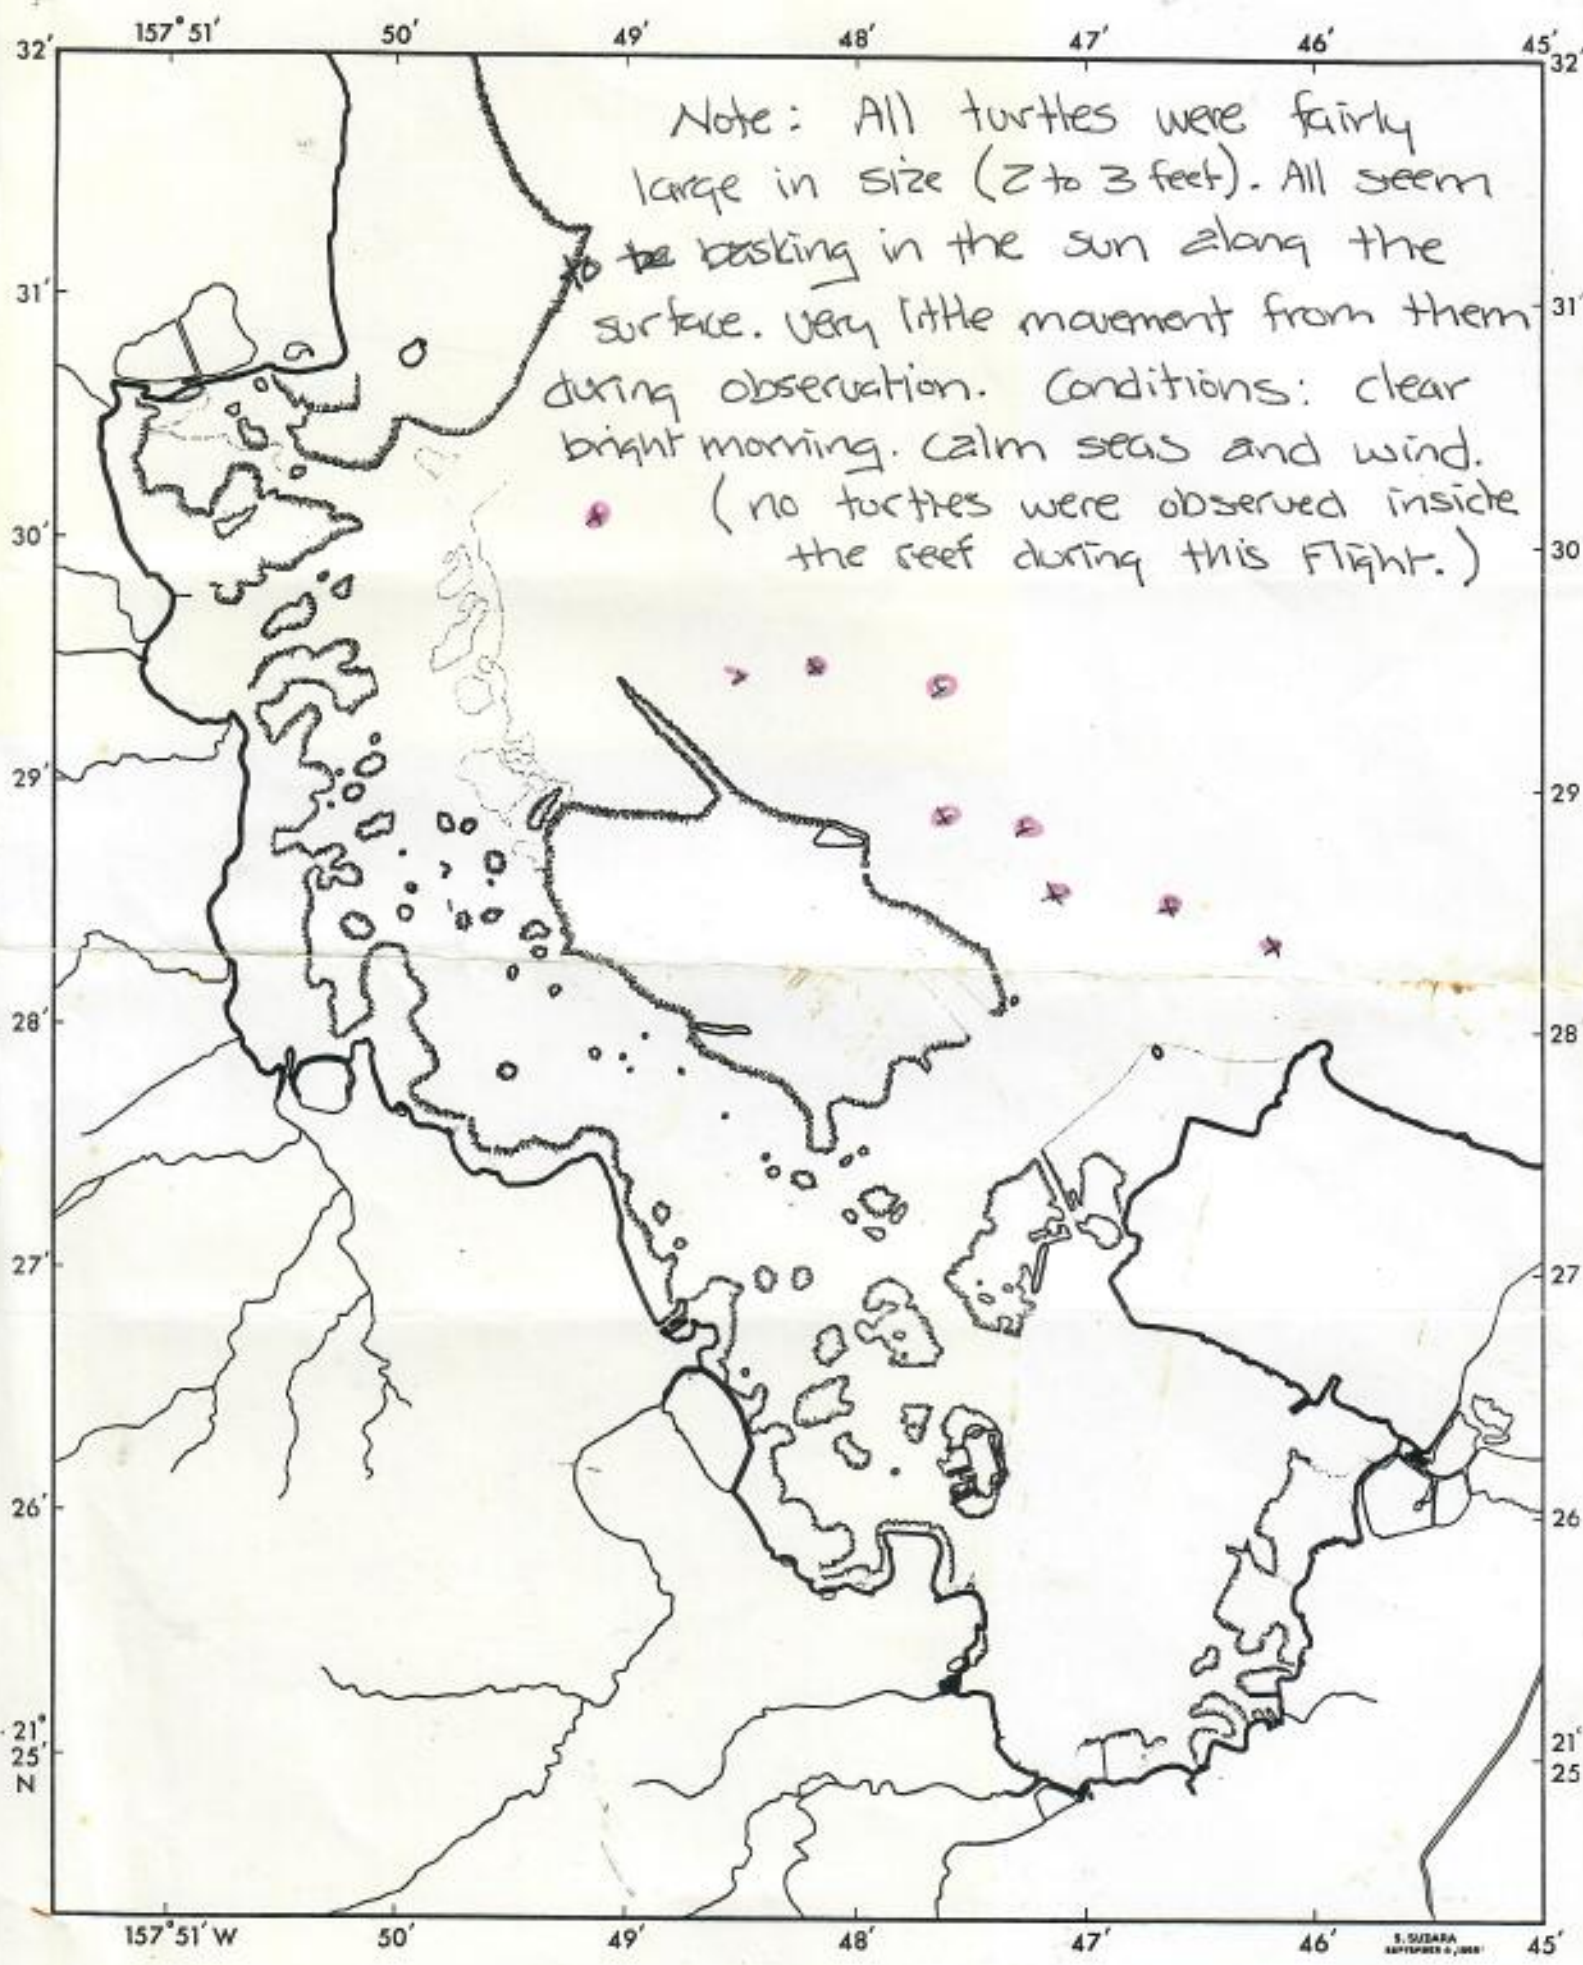 157°51' 50' 49' 48' 47' 46' 45'
32' 32'
Note: All turtles were fairly
large in size (2 to 3 feet). All seem
to be basking in the sun along the
31' 31'
surface. very little movement from them
during observation. Conditions: clear
bright morning. calm seas and wind.
(no turtles were observed inside
30' 30
the reef during this flight.)
29' 29
28' 28
27' 27
26' 26
21° 21°
25' 25'
N
157°51' W 50' 49' 48' 47' 46' 45'